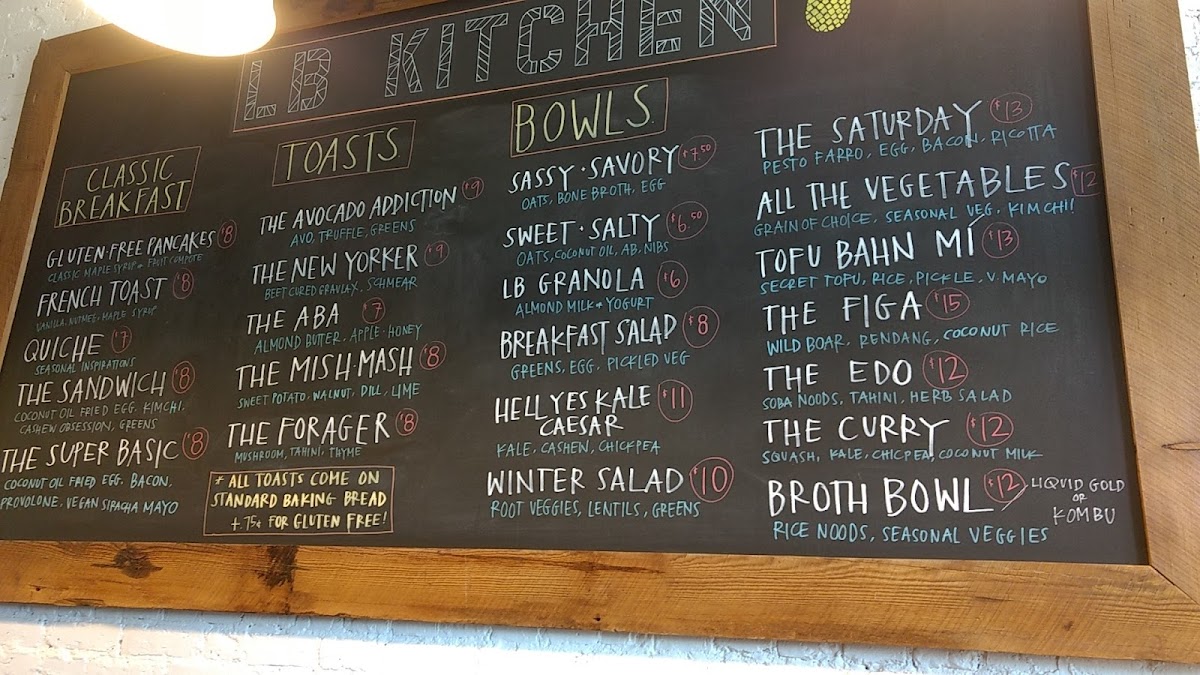 LB KITCHEN
CLASSIC
BREAKFAST
GLUTEN-FREE PANCAKES $8
CLASSIC MAPLE SYRUP + FRUIT COMPOTE
FRENCH TOAST $8
VANILLA, NUTMEG, MAPLE SYRUP
QUICHE $7
SEASONAL INSPIRATIONS
THE SANDWICH $8
COCONUT OIL FRIED EGG, KIMCHI,
CASHEW OBSESSION, GREENS
THE SUPER BASIC $8
COCONUT OIL FRIED EGG, BACON,
PROVOLONE, VEGAN SIRACHA MAYO
TOASTS
THE AVOCADO ADDICTION $9
AVO, TRUFFLE, GREENS
THE NEW YORKER $9
BEET CURED GRAVLAX, SCHMEAR
THE ABA $7
ALMOND BUTTER, APPLE, HONEY
THE MISH-MASH $8
SWEET POTATO, WALNUT, DILL, LIME
THE FORAGER $8
MUSHROOM, TAHINI, THYME
* ALL TOASTS COME ON
STANDARD BAKING BREAD
+ .75¢ FOR GLUTEN FREE!
BOWLS
SASSY·SAVORY $7.50
OATS, BONE BROTH, EGG
SWEET·SALTY $6.50
OATS, COCONUT OIL, AB, NIBS
LB GRANOLA $6
ALMOND MILK + YOGURT
BREAKFAST SALAD $8
GREENS, EGG, PICKLED VEG
HELL YES KALE $11
CAESAR
KALE, CASHEW, CHICKPEA
WINTER SALAD $10
ROOT VEGGIES, LENTILS, GREENS
THE SATURDAY $13
PESTO FARRO, EGG, BACON, RICOTTA
ALL THE VEGETABLES $12
GRAIN OF CHOICE, SEASONAL VEG, KIMCHI
TOFU BAHN MÍ $13
SECRET TOFU, RICE, PICKLE, V. MAYO
THE FIGA $15
WILD BOAR, RENDANG, COCONUT RICE
THE EDO $12
SOBA NOODS, TAHINI, HERB SALAD
THE CURRY $12
SQUASH, KALE, CHICPEA, COCONUT MILK
BROTH BOWL $12 LIQUID GOLD
OR
KOMBU
RICE NOODS, SEASONAL VEGGIES